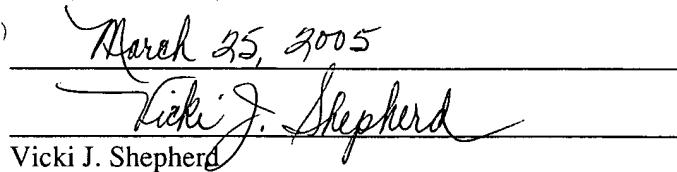 )
March 25, 2005
Vicki J. Shepherd
Vicki J. Shepherd